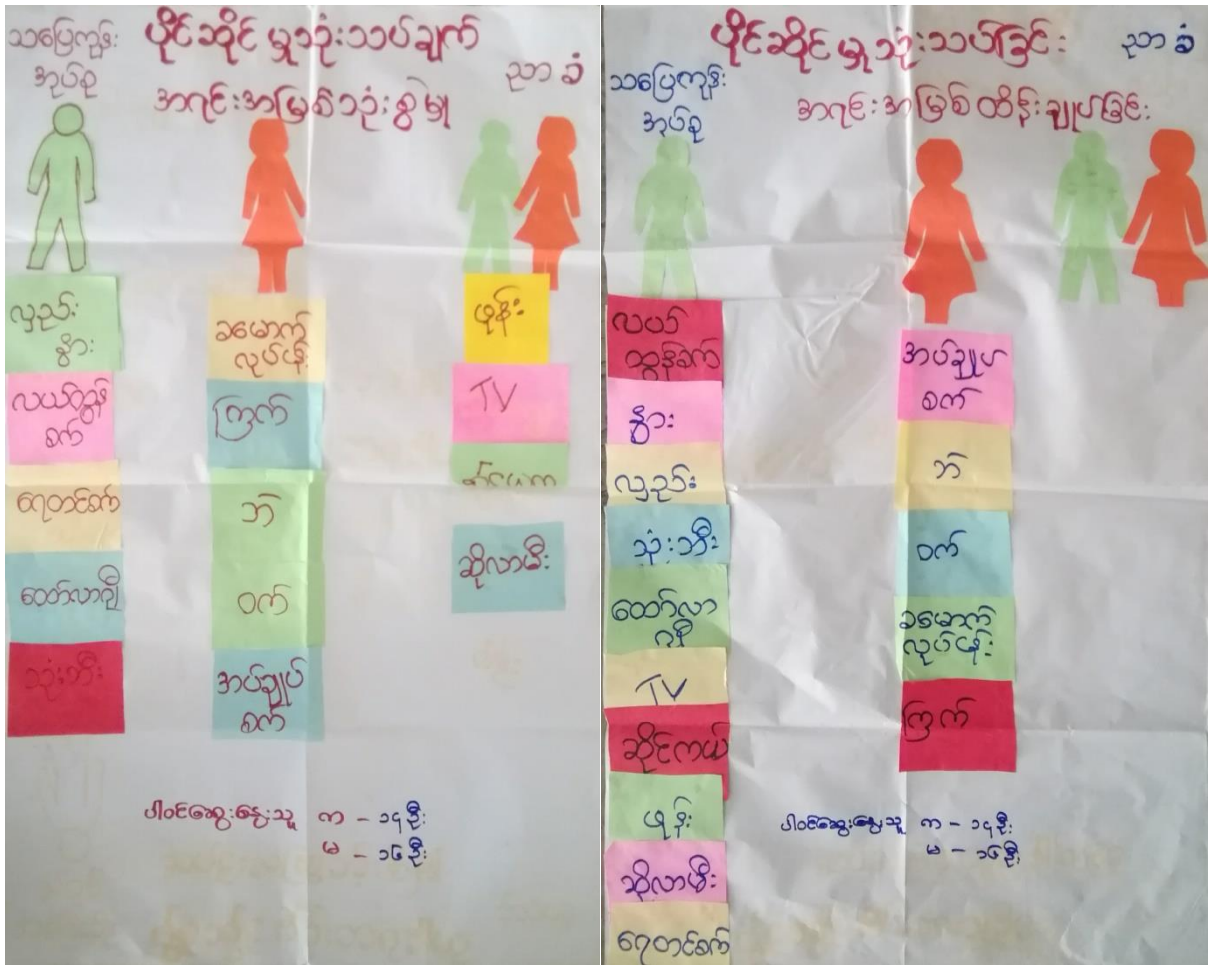 သပြေကုန်း
အုပ်စု
ပိုင်ဆိုင်မှုသုံးသပ်ချက်
ညာခံ
အရင်းအမြစ်သုံးစွဲမှု
လှည်း
နွား
လယ်ထွန်
စက်
ရေတင်စက်
ထော်လာဂျီ
သုံးဘီး
ခမောက်
လုပ်ငန်း
ကြက်
ဘဲ
ဝက်
အပ်ချုပ်
စက်
ဖုန်း
TV
ဆိုလာမီး
ပါဝင်ဆွေးနွေးသူ က - ၁၄ဦး
မ - ၁၆ဦး
ပိုင်ဆိုင်မှုသုံးသပ်ခြင်း
ညာခံ
သပြေကုန်း
အုပ်စု
အရင်းအမြစ်ထိန်းချုပ်ခြင်း
လယ်
ထွန်စက်
နွား
လှည်း
သုံးဘီး
ထော်လာ
ဂျီ
TV
ဆိုင်ကယ်
ဖုန်း
ဆိုလာမီး
ရေတင်စက်
အပ်ချုပ်
စက်
ဘဲ
ဝက်
ခမောက်
လုပ်ငန်း
ကြက်
ပါဝင်ဆွေးနွေးသူ က - ၁၄ဦး
မ - ၁၆ဦး